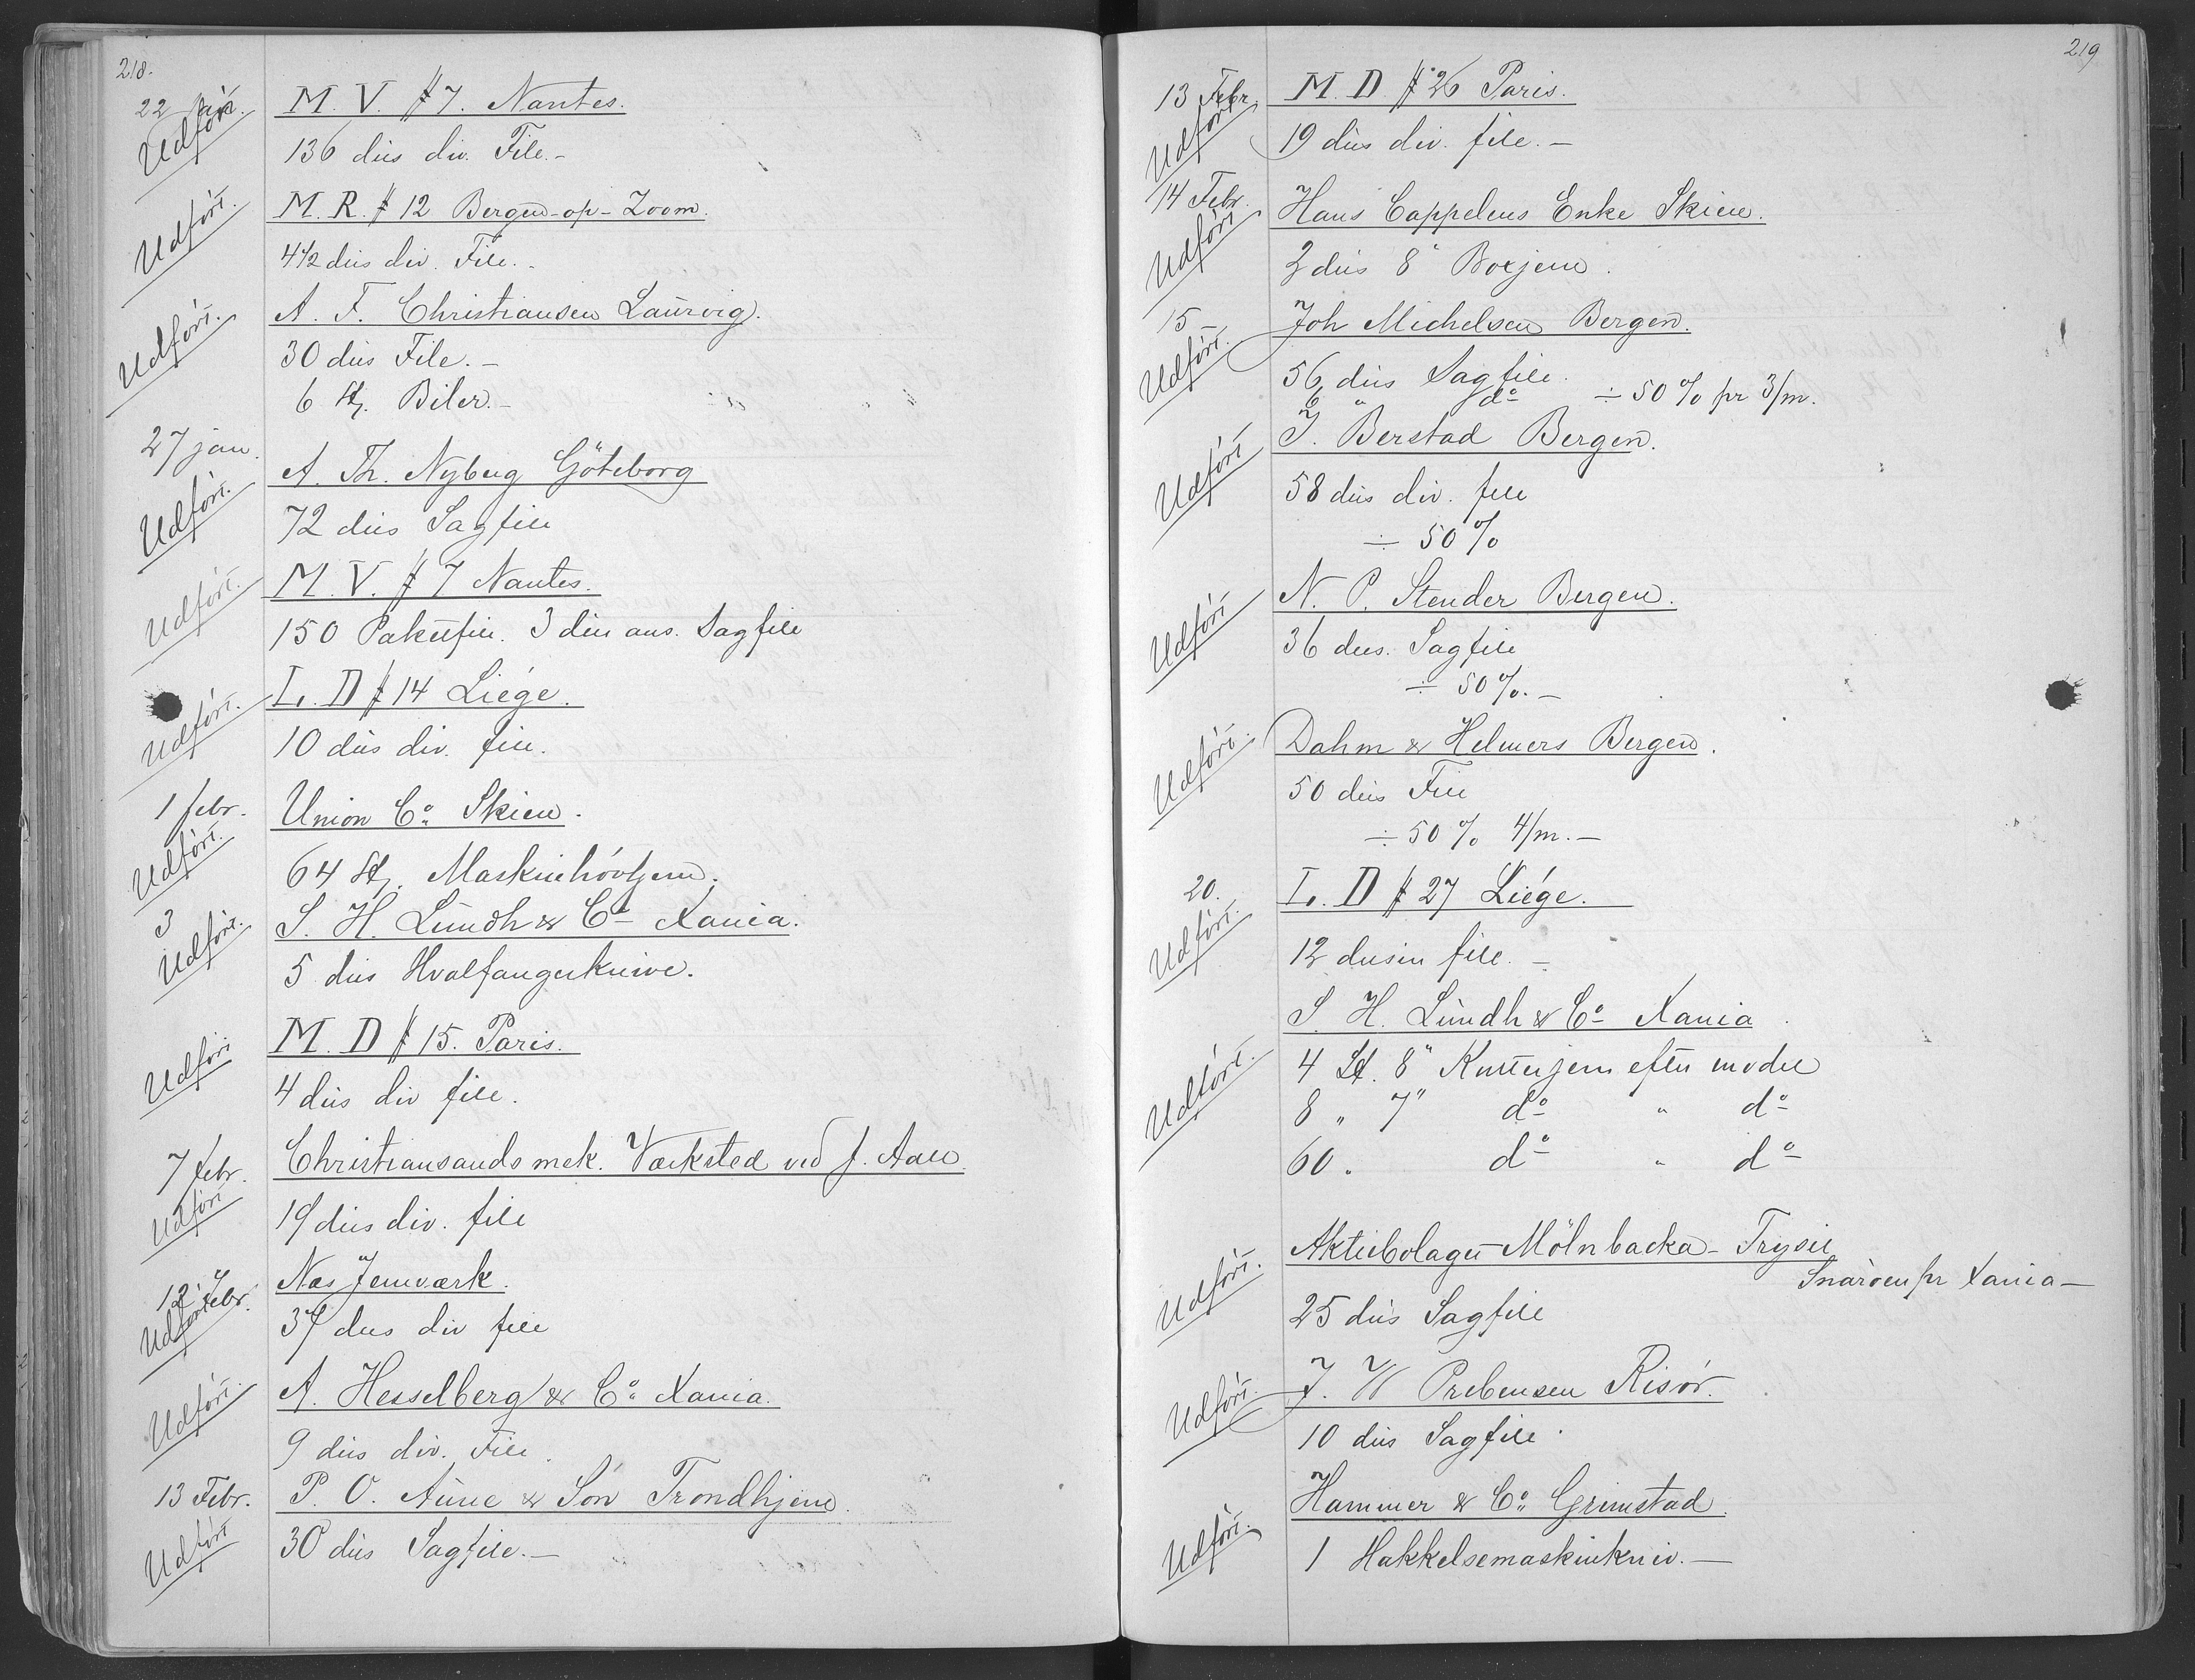 218.
22 jan. M. V. # 7. Nantes.
Udført 136 dus div. File.-
Udført. M. R. # 12 Bergen-op-Zoom.
4 1/2 dus div. File.-
Udført. A. F. Christiansen Laurvig.
30 dus File.-
6 St. Biler.-
27 jan. A. Th. Nyberg Göteborg
Udført. 72 dus Sagfile
Udført. M. V. # 7 Nantes.
150 Paketfile. 3 dus ans. Sagfile
Udført. L. D # 14 Liége.
10 dus div. file.
1 febr. Union Co. Skien.
Udført. 64 St. Maskinhövljern.
3 S. H. Lundh & Co Xania.
Udført. 5 dus Hvalfangerknive.
Udført M. D # 15. Paris.
4 dus div file.
7 febr. Christiansands mek. Værksted ved J. Aall
Udført 19 dus div. file
12 Febr. Næs Jernværk.
Udført 37 dus div file
Udført. A. Hesselberg & Co. Xania.
9 dus div. File.
13 Febr. P. O. Aune & Sön Trondhjem.
Udført 30 dus Sagfile.-
219
13 Febr. M. D # 26 Paris.
Udført 19 dus div. file.-
14 Febr. Hans Cappelens Enke Skien.
Udført 2 dus 8" Boxjern.
15 - Joh Michelsen Bergen.
Udført. 56 dus Sagfile.
6 " do ÷ 50 % pr 3/m.
Udført J. Berstad Bergen.
58 dus div. file
÷ 50 %
Udført N. P. Stender Bergen.
36 dus. Sagfile
÷ 50 %.-
Udført. Dahm & Helmers Bergen.
50 dus File
÷ 50 % 4/m.-
20. L. D # 27 Liége.
Udført. 12 dusin file.-
S. H. Lundh & Co Xania
Udført. 4 St. 8" Kutterjern efter model
8 " 7" do " do
60 " do " do
Udført. Aktiebolaget Mölnbacka-Trysil
Snaröen pr Xania-
25 dus Sagfile
Udført. J. W Prebensen Risör.
10 dus Sagfile.
Udført. Hammer & Co. Grimstad.
1 Hakkelsemaskinkniv.-